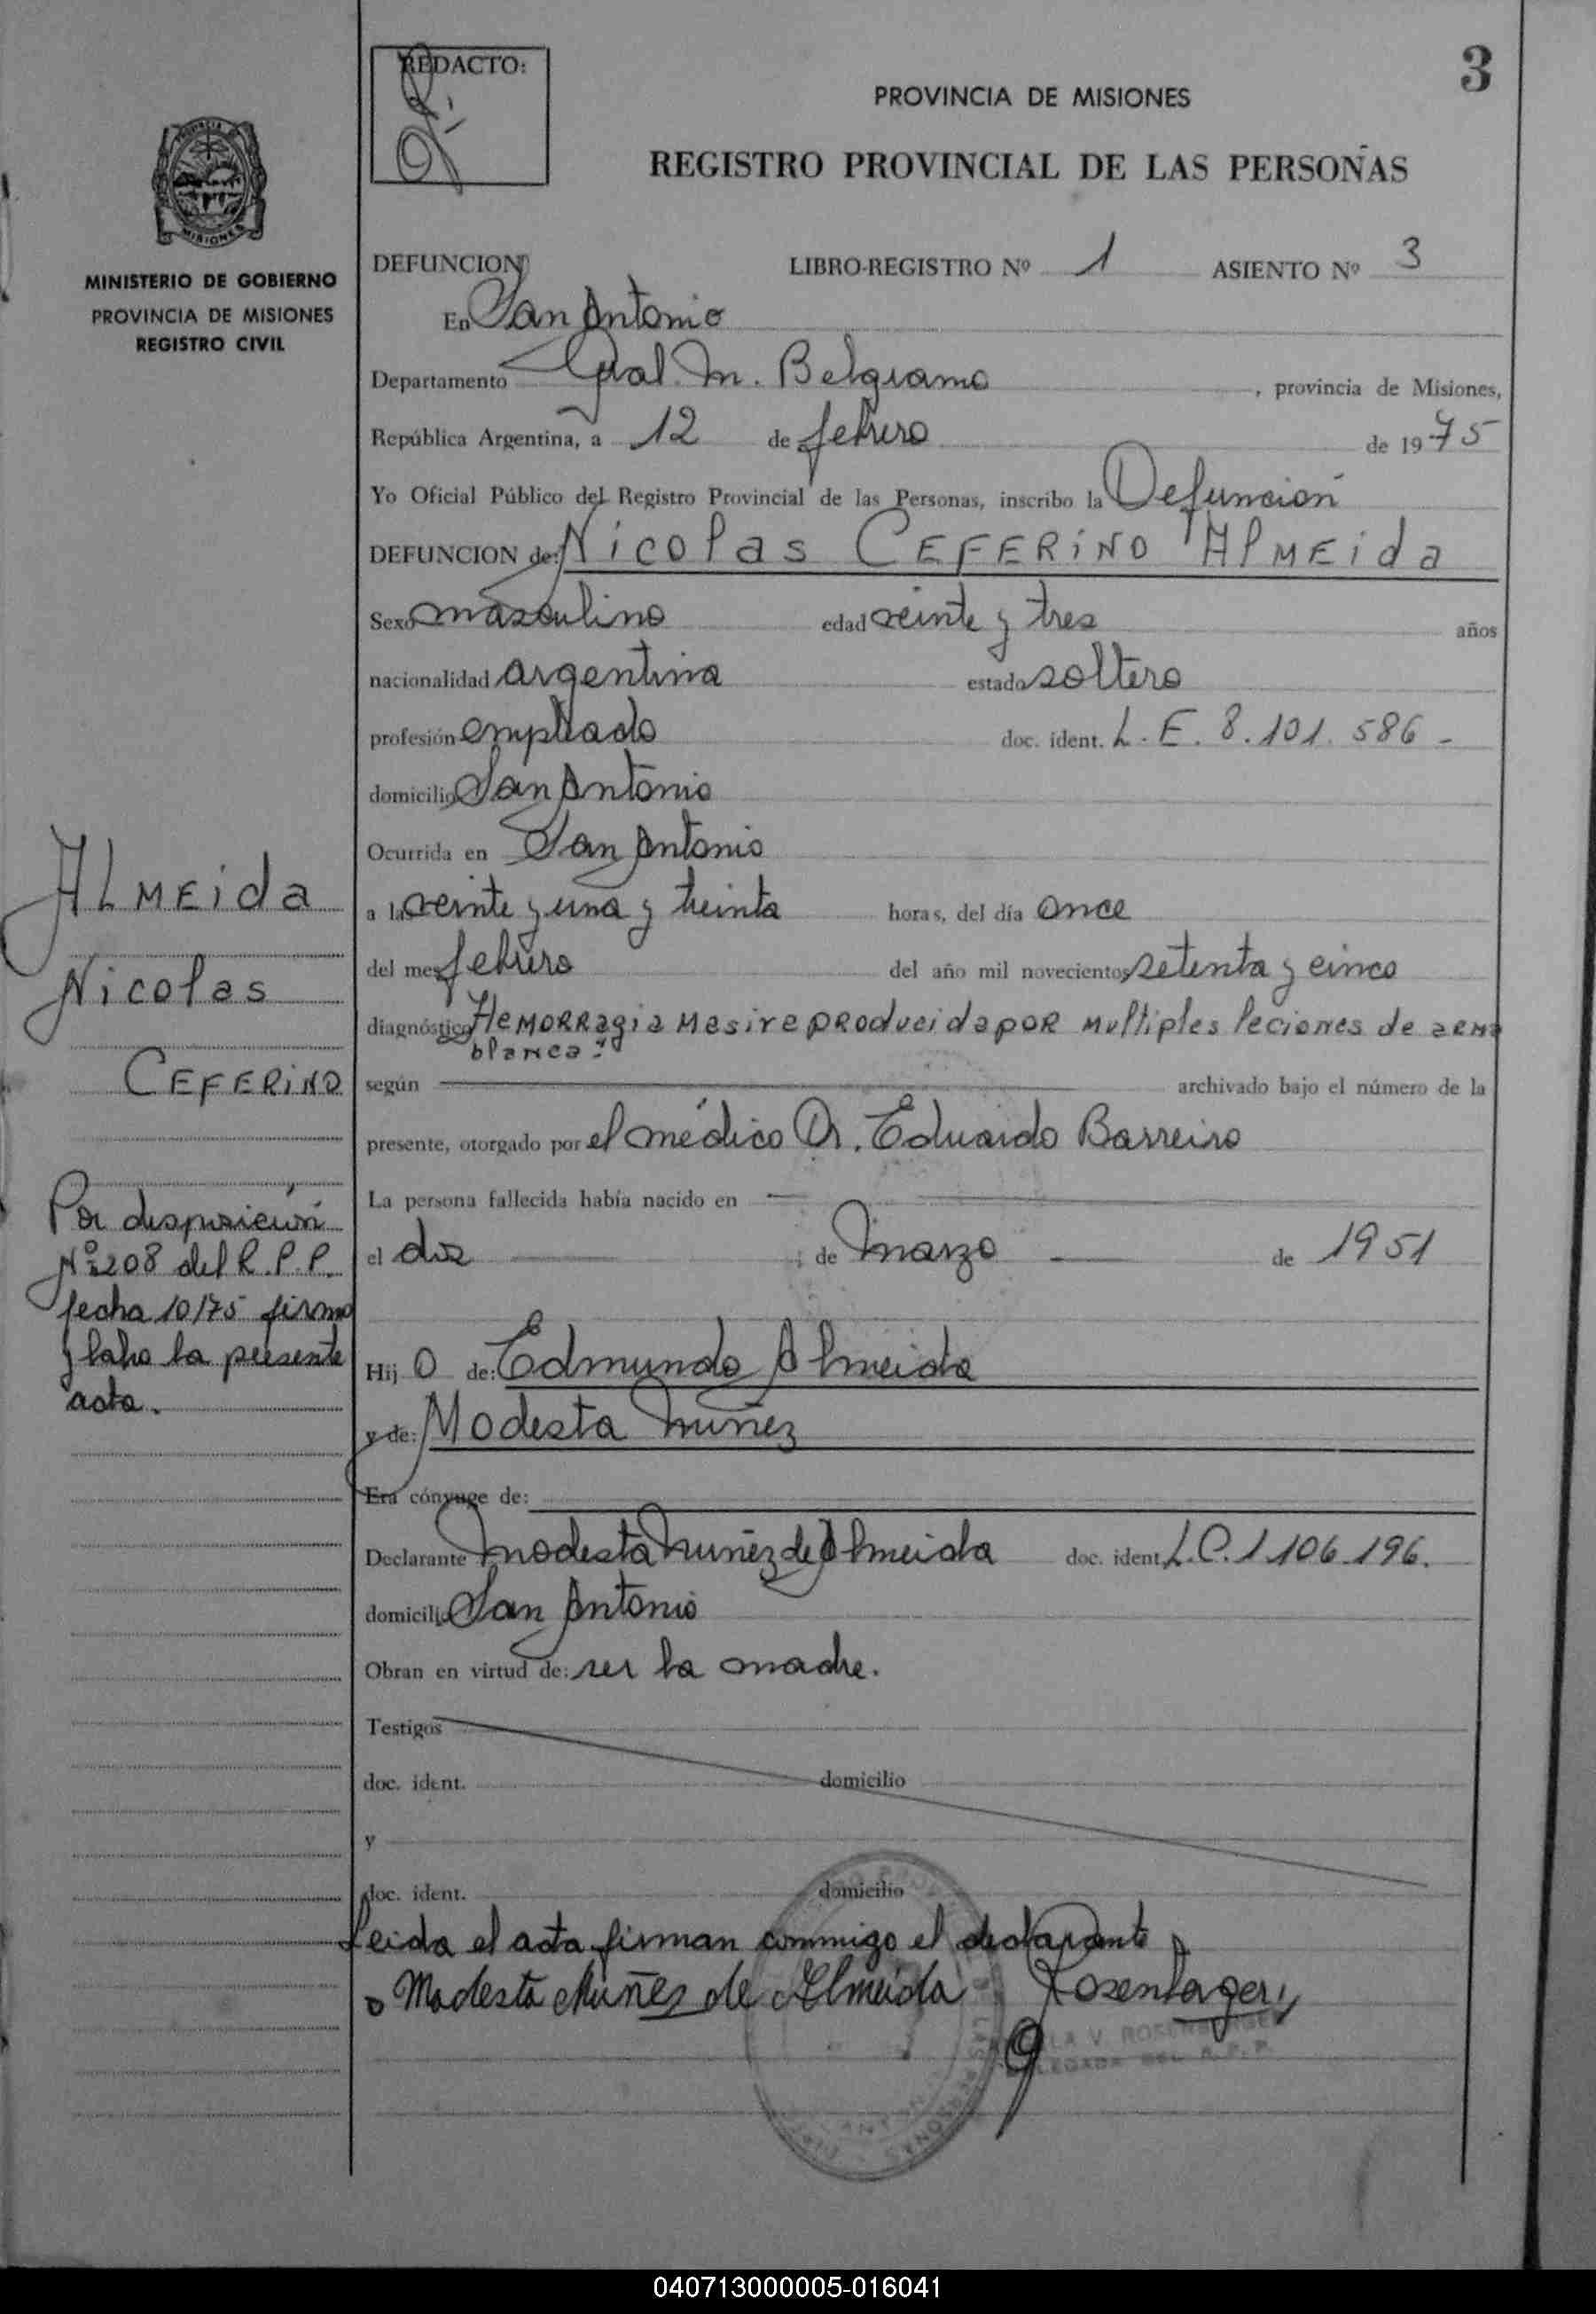 3
REDACTO:
PROVINCIA DE MISIONES
REGISTRO PROVINCIAL DE LAS PERSONAS
MISIONES
MINISTERIO DE GOBIERNO
PROVINCIA DE MISIONES
REGISTRO CIVIL
DEFUNCION LIBRO-REGISTRO Nº 1 ASIENTO Nº 3
En San Antonio
Departamento Gral. M. Belgrano, provincia de Misiones,
República Argentina, a 12 de febrero de 1975
Yo Oficial Público del Registro Provincial de las Personas, inscribo la Defunción
DEFUNCION de: Nicolas CEFERiNO AlMEida
Sexo masculino edad veinte y tres años
nacionalidad argentina estado soltero
profesión empleado doc. ident. L.E. 8.101.586-
domicilio San Antonio
Ocurrida en San Antonio
a las veinte y una y treinta horas, del día once
del mes febrero del año mil novecientos setenta y cinco
diagnóstico HeMORRagia Masive pRoducida poR Multiples leciones de aRMa
blanca
según archivado bajo el número de la
presente, otorgado por el médico Dr. Eduardo Barreiro
La persona fallecida había nacido en —
el diz de Marzo de 1951
Hij o de: Edmundo Almeida
y de: Modesta Nuñez
Era cónyuge de:
Declarante Modesta Nuñez de Almeida doc. ident. L.C. 1.106.196.
domicilio San Antonio
Obran en virtud de: ser la madre.
Testigos
doc. ident. domicilio
y
doc. ident. domicilio
Leida el acta firman conmigo el declarante
Modesta Nuñez de Almeida Rosenberger
V. ROSENBERGER
DEL R.P.P.
ALMEida
Nicolas
CEFERiNO
Por disposición
Nº 208 del R.P.P.
fecha 10/75 firmo
y labro la presente
acta.
040713000005-016041